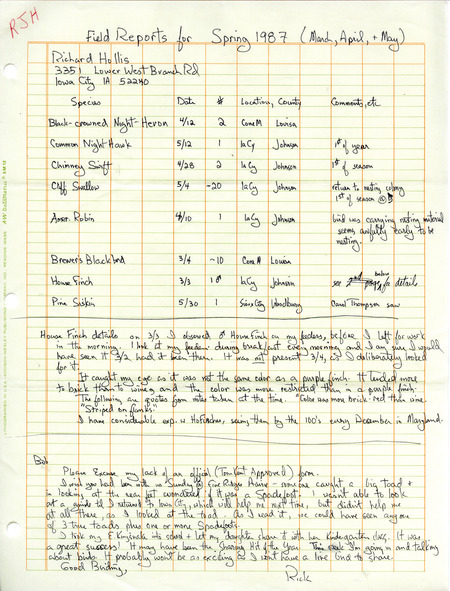 RJH
Field Reports for Spring 1987 (March, April, + May)
Richard Hollis
3351 Lower West Branch Rd
Iowa City IA 52240
Species Date # Location, County Comments, etc
Black-crowned Night-Heron 4/12 2 Cone M Louisa
Common Night Hawk 5/12 1 Ia Cy Johnson 1st of year
Chimney Swift 4/28 2 Ia Cy Johnson 1st of season
Cliff Swallow 5/4 ~20 Ia Cy Johnson return to nesting colony
1st of season
Amer. Robin 4/10 1 Ia Cy Johnson bird was carrying nesting material
seems awfully early to be
nesting.
Brewer's Blackbird 3/4 ~10 Cone M Louisa
House Finch 3/3 1 ♂ Ia Cy Johnson see below for details
Pine Siskin 5/30 1 Sioux City Woodbury Carol Thompson saw
House Finch details on 3/3 I observed ♂ House Finch on my feeders, before I left for work
in the morning. I look at my feeders during breakfast every morning and I am sure I would
have seen it 3/2 had it been there. It was not present 3/4, as I deliberately looked
for it.
It caught my eye as it was not the same color as a purple finch. It tended more
to brick than to wine, and the color was more restricted than in a purple finch.
The following are quotes from notes taken at the time. "Color was more brick-red than wine.
"Striped on flanks".
I have considerable exp. w Ho Finches, seeing them by the 100's every December in Maryland.
Bob
Please Excuse my lack of an official (Tom Kent Approved) form.
I wish you had been with us Sunday @ Five Ridge Prairie - someone caught a big toad +
in looking at the rear feet wondered if it was a Spadefoot. I wasn't able to look
at a guide til I returned to Iowa City, which will help me next time, but didn't help me
at all then, as I looked at the toad. As I read it, we could have seen any one
of 3 true toads plus one or more Spadefoots.
I took my E. Kingsnake to school + let my daughter share it with her kindergarten class. It was
a great success! It may have been the Sharing Hit of the Year. I'm going in and talking
about birds. It probably won't be as exciting as I won't have a live bird to share.
Good Birding,
Rick